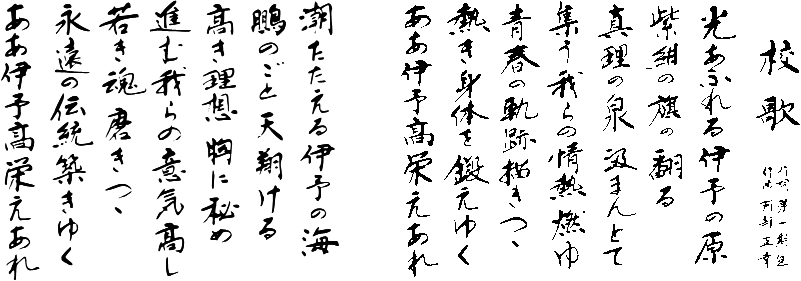 校歌
光あふれる伊予の原
紫紺の旗の翻る
真理の泉汲まんとて
集う我らの情熱燃ゆ
青春の軌跡描きつゝ
熱き身体を鍛えゆく
ああ伊予高栄えあれ
潮たたえる伊予の海
鵬のごと天翔ける
高き理想胸に秘め
進む我らの意気高し
若き魂磨きつゝ
永遠の伝統築きゆく
ああ伊予高栄えあれ